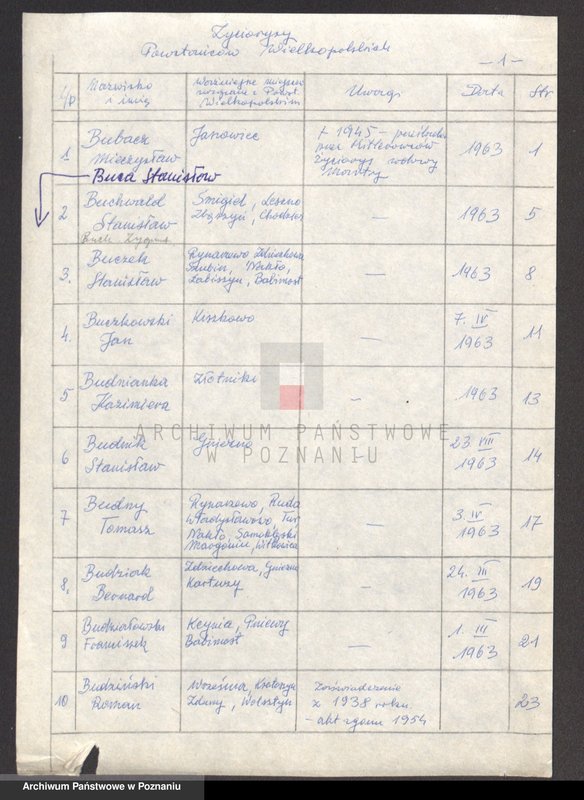 Życiorysy
Powstańców Wielkopolskich
— 1 —
L/p
Nazwisko
i imię
Ważniejsze miejsca
związane z Powst.
Wielkopolskim
Uwagi
Data
Str
1
Bubacz
Mieczysław
Janowiec
† 1945 –
przez Hitlerowców
Życiorys
1963
1
Buca Stanisław
2
Buchwald
Stanisław
Buch Zygmunt
Śmigiel, Leszno
Zbąszyń, Chodzież
—
1963
5
3.
Buczek
Stanisław
Rynarzewo, Zdziechowa
Szubin, Nakło,
Łabiszyn, Babimost
—
1963
8
4.
Buczkowski
Jan
Kiszkowo
—
7. IV
1963
11
5
Budnianka
Kazimiera
Złotniki
—
1963
13
6
Budnik
Stanisław
Gniezno
—
23 VIII
1963
14
7
Budny
Tomasz
Rynarzewo, Ruda
Władysławowo, Tur
Nakło,
Margonin,
—
3. IV
1963
17
8.
Budziak
Leonard
Zdziechowa, Gniezno
Kartuzy
—
24. III
1963
19
9
Budziałowski
Franciszek
Kcynia, Pniewy
Babimost
—
1. III
1963
21
10
Budziński
Roman
Września, Krotoszyn
Zduny, Wolsztyn
Zaświadczenie
z 1938 roku.
– akt zgonu 1954
23
ARCHIWUM PAŃSTWOWE
W POZNANIU
Archiwum Państwowe w Poznaniu